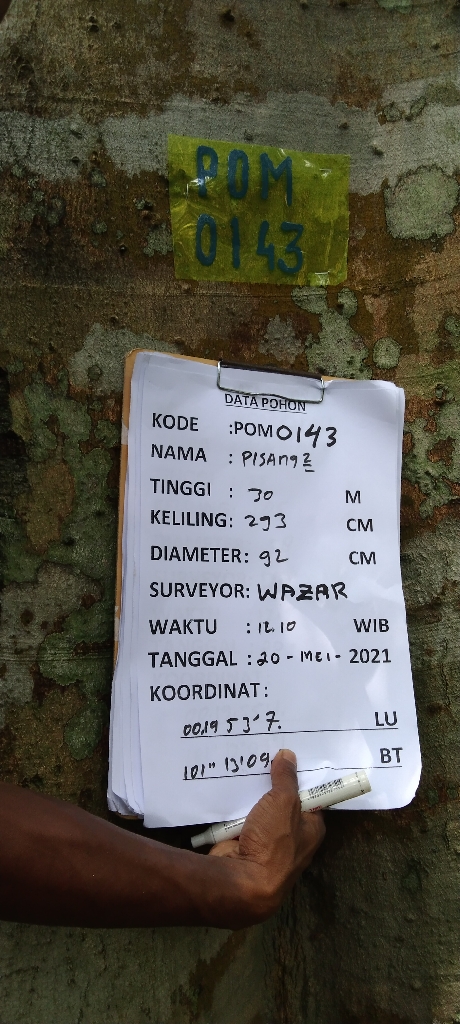 POM
0143
DATA POHON
KODE :POM0143
NAMA : PISANG2
TINGGI : 30 M
KELILING: 293 CM
DIAMETER: 92 CM
SURVEYOR: WAZAR
WAKTU : 12.10 WIB
TANGGAL : 20 - MEI - 2021
KOORDINAT:
00.19 53'7. LU
101" 13'09 BT